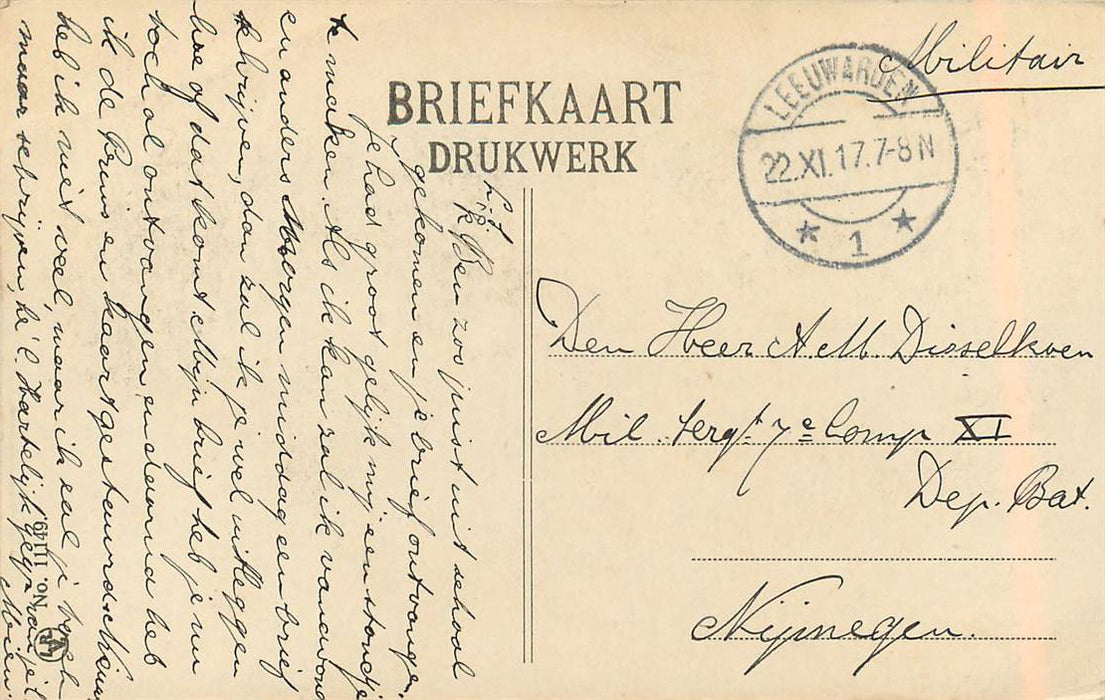 BRIEFKAART
DRUKWERK
Militair
LEEUWARDEN
22.XI.17.7-8N
1
Den Heer A.M. Disselkoen
Mil. sergt. 7e Comp XI
Dep. Bat.
Nijmegen.
L.f.
Ik Ben zoo juist uit school
gekomen en je brief ontvangen.
Je had groot gelijk mij een standje
te maken. Als ik kan zal ik vanavond
en anders Morgen middag een brief
schrijven, dan zal ik je wel uitleggen
hoe of dat komt. Mijn brief heb je nu
toch al ontvangen en daarna heb
ik de Prins en kaart gestuurd. Nieuws
heb ik niet veel, maar ik zal je toch
maar schrijven, hè. Hartelijk gegr. van je
Mien.
No. 11149.